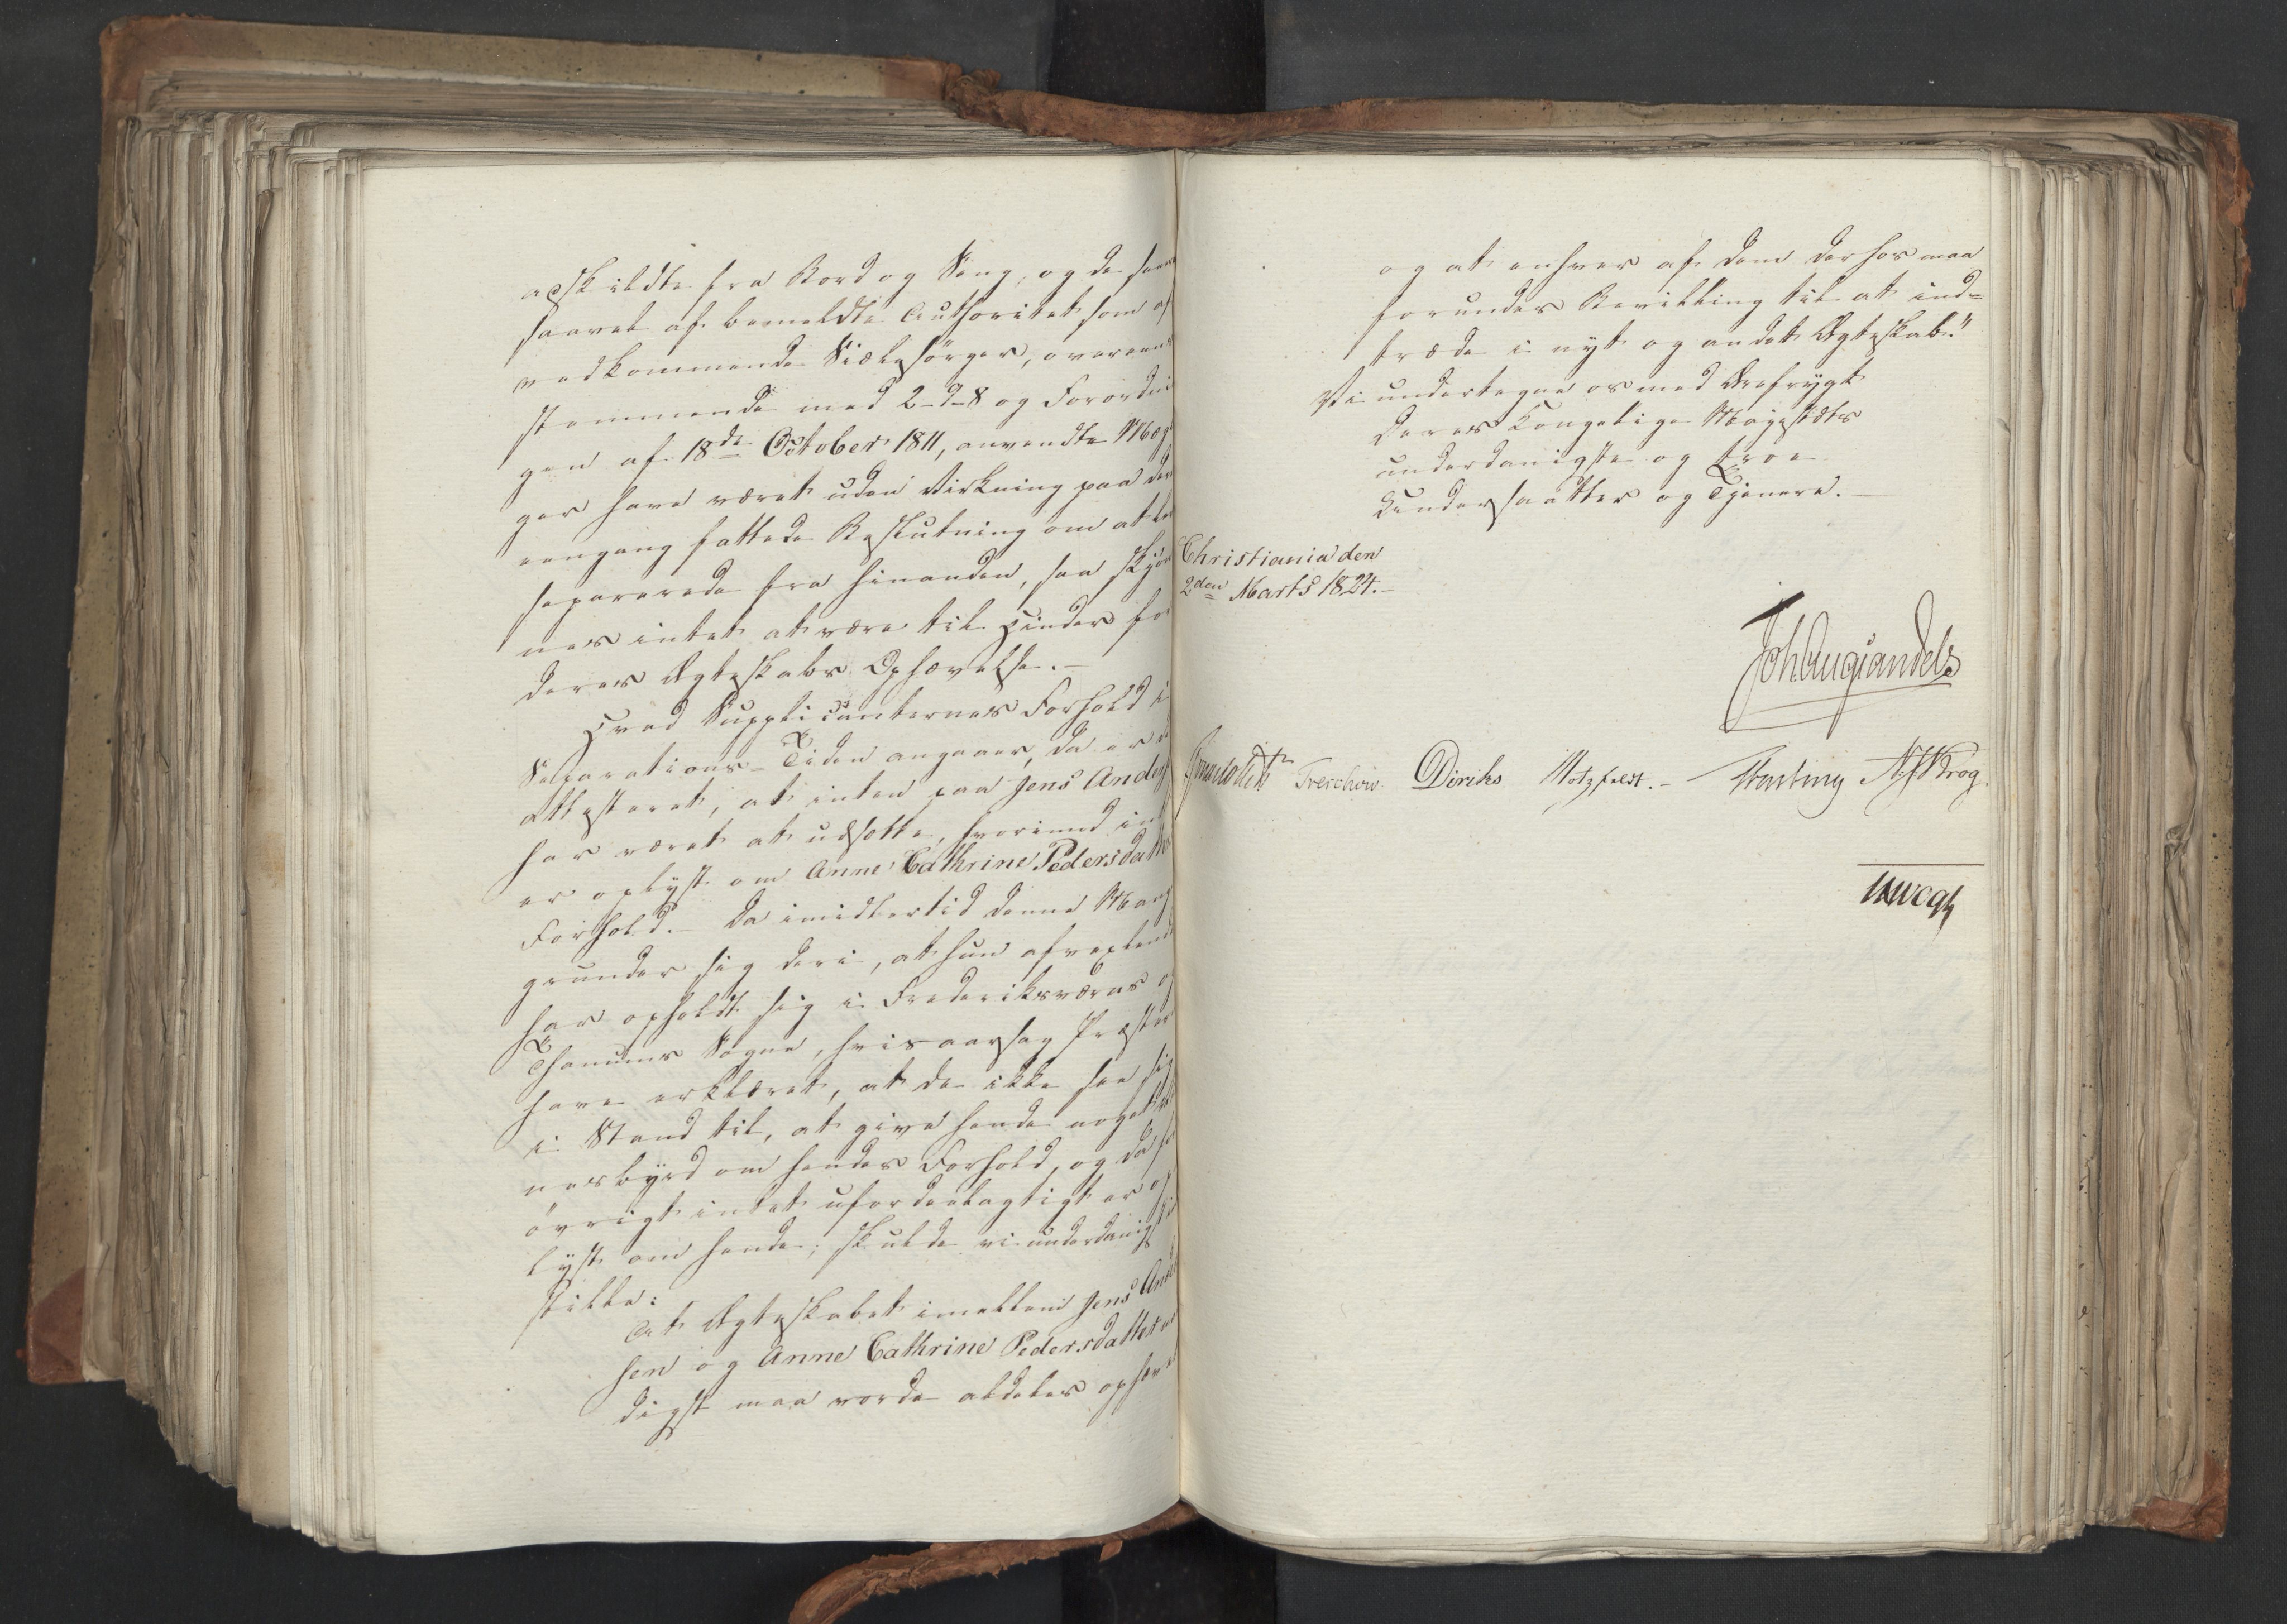 adskildte fra Bord og Seng, og de saa
saavel af bemeldte Authoritet som af
vedkommende Siælesörger, overeens
stemmende med 2-9-8 og Forordni
gen af 18de October 1811, anvendte Mæg
ger have været uden Virkning paa der
eengang fattede Beslutning om at le
separerede fra hinanden, saa skjøn
nes intet at være til Hinder for
deres Ægteskabs Ophævelse.-
Hvad Supplicanternes Forhold i
Separations-Tiden angaaer, da er d
attesteret, at intet paa Jens Anders
har været at udsætte, hvorimod int
er oplyst om Anne Cathrine Pedersdatte
Forhold.- Da imidlertid denne Mang
grunder sig deri, at hun afvexlende
har opholdt sig i Frederiksværns og
Thanums Sogne, hvisaarsag Præste
have erklæret, at de ikke see sig
i Stand til, at give hende noget Vid
nesbyrd om hendes Forhold, og da for
övrigt intet ufordeelagtigt er op
lyst om hende; skulde vi underdanigst ind
stille:
At Ægteskabet imellem Jens Ander
sen og Anne Cathrine Pedersdatter naa
digst maa vorde aldeles ophævet
og at enhver af dem derhos maa
forundes Bevilling til at ind=
træde i nyt og andet Ægteskab."
Vi undertegne os med Ærefrygt
Deres Kongelige Majestæts
underdanigste og troe
Undersaatter og Tjenere.-
Christiania den
2den Marts 1824.-
Joh Aug Sandels
Treschow Diriks Motzfeldt.- Fasting N J Krog.